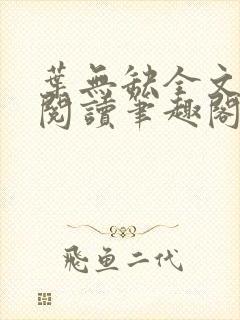 葉無缺全文
閱讀筆趣閣
飛魚二代